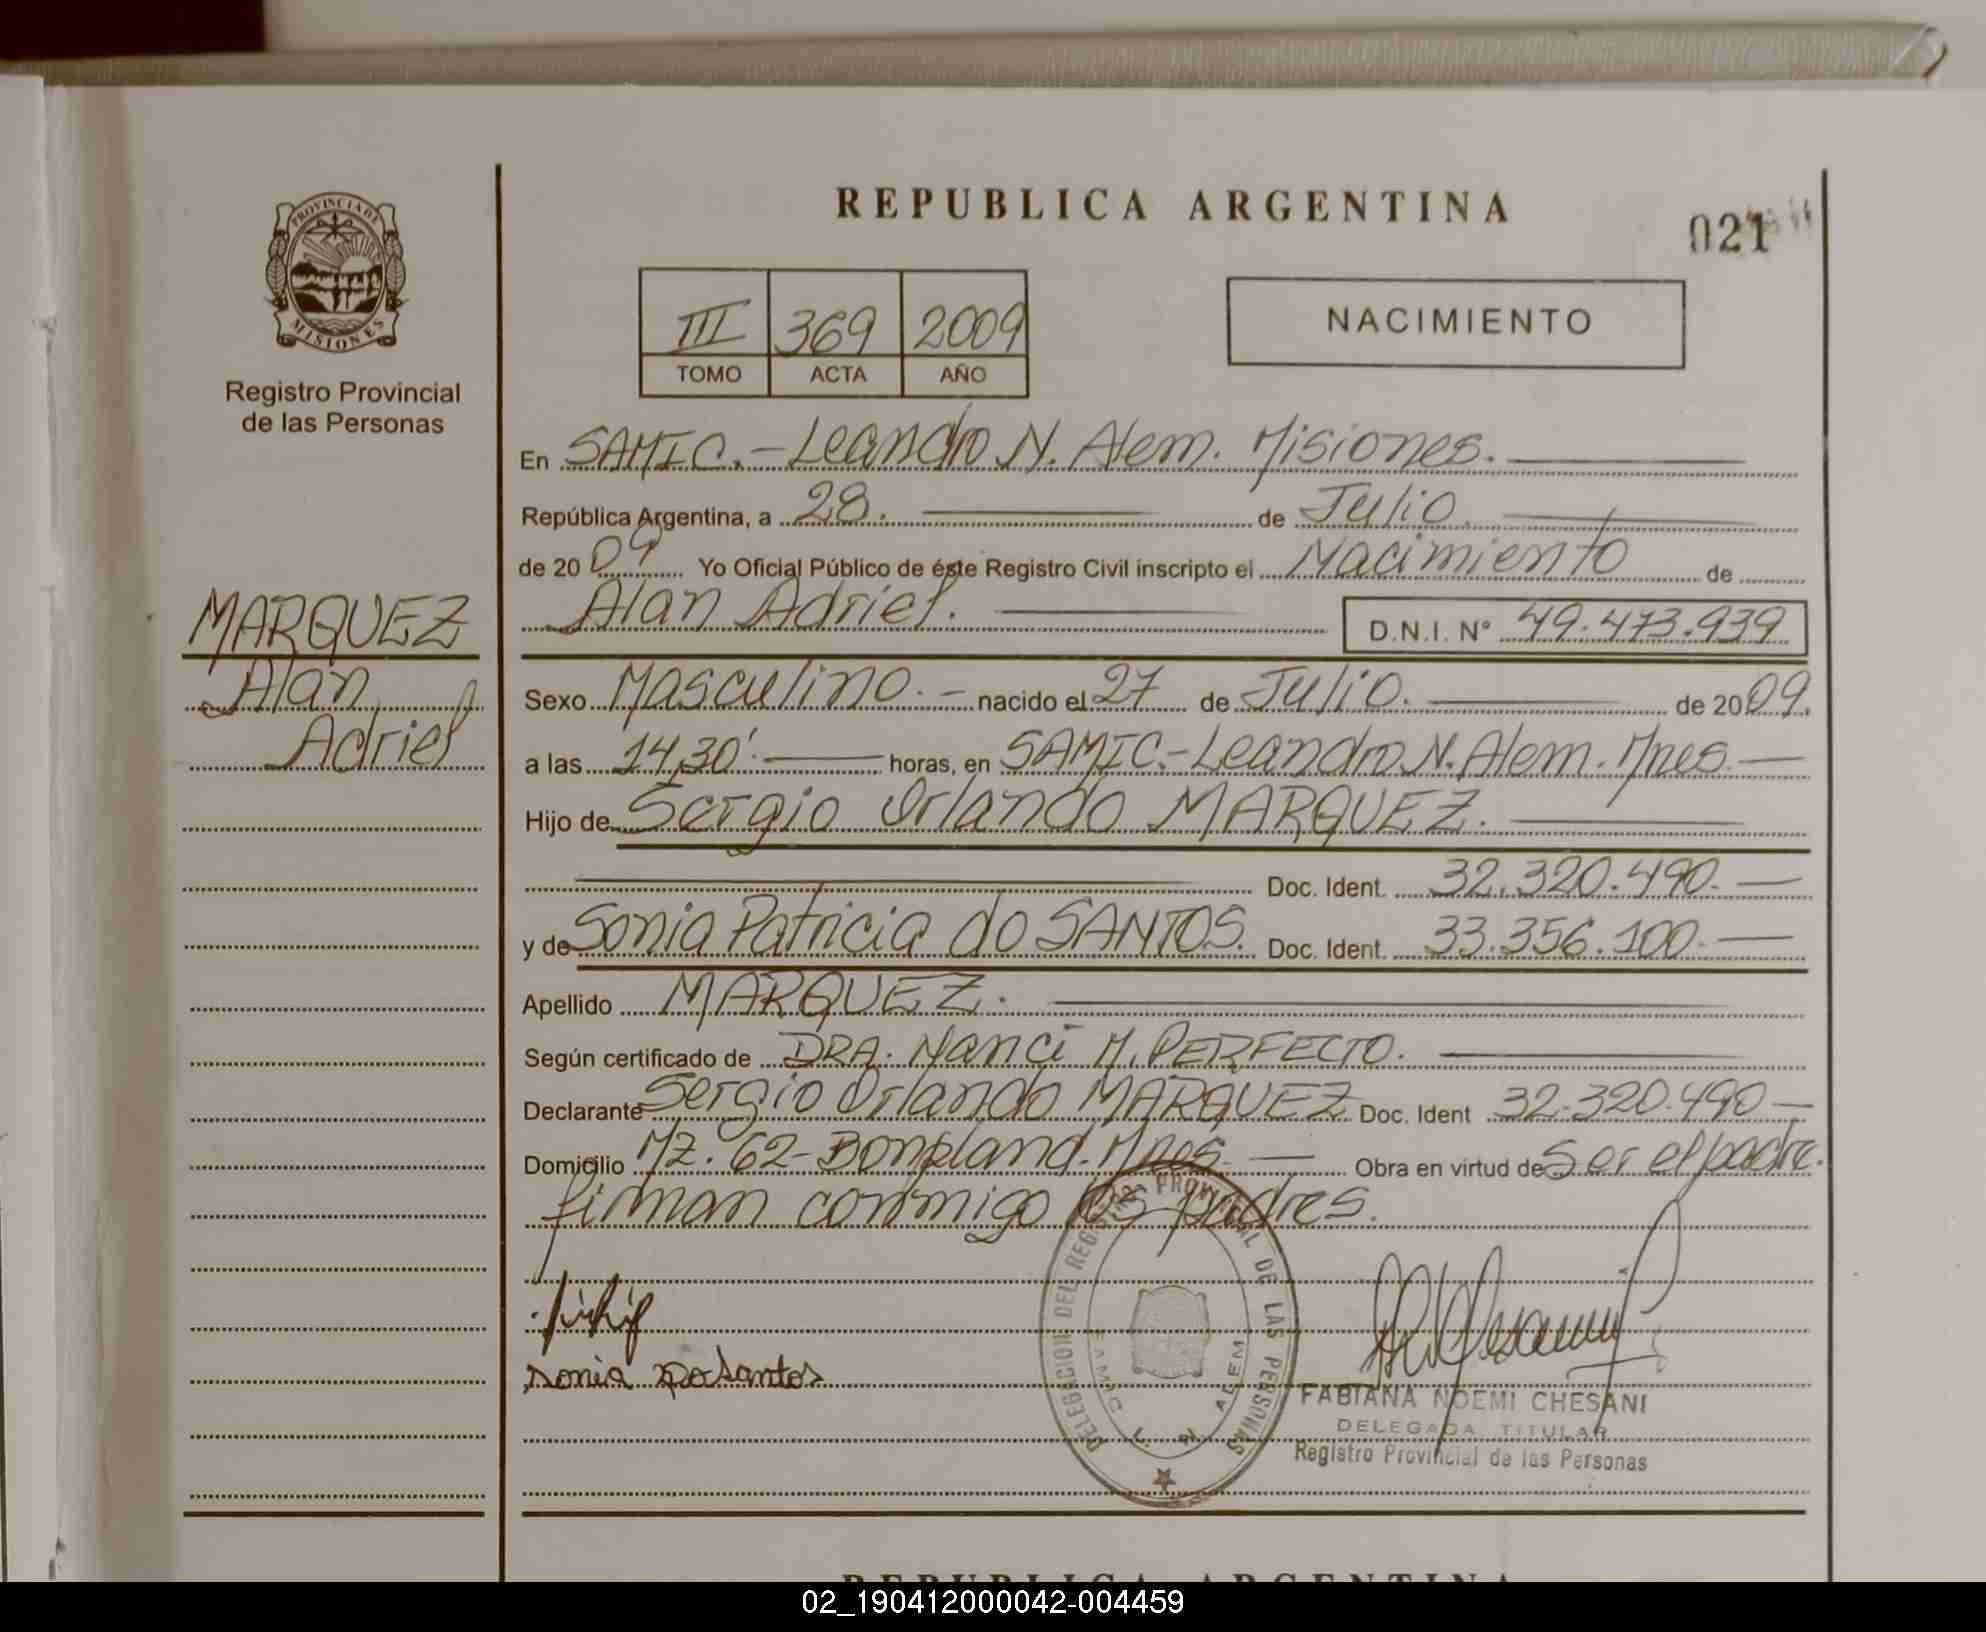 PROVINCIA DE
MISIONES
Registro Provincial
de las Personas
MARQUEZ
Alan
Adriel
REPUBLICA ARGENTINA
021
III 369 2009
TOMO ACTA AÑO
NACIMIENTO
En SAMIC.-Leandro N. Alem. Misiones.
República Argentina, a 28. de Julio
de 2009 Yo Oficial Público de éste Registro Civil inscripto el Nacimiento de
Alan Adriel. D.N.I. N° 49.473.939
Sexo Masculino.- nacido el 27 de Julio. de 2009.
a las 14,30' horas, en SAMIC.-Leandro N. Alem. Mnes.
Hijo de Sergio Orlando MARQUEZ.
Doc. Ident. 32.320.490.
y de Sonia Patricia do SANTOS. Doc. Ident. 33.356.100.
Apellido MARQUEZ.
Según certificado de DRA. Nanci M. PERFECTO.
Declarante Sergio Orlando MARQUEZ Doc. Ident 32.320.490
Domicilio Mz. 62-Bonpland. Mnes. Obra en virtud de Ser el padre.
firman conmigo los padres.
sonia dosantos
DELEGACION DEL REGISTRO PROVINCIAL DE LAS PERSONAS
SAMIC L. N. ALEM
FABIANA NOEMI CHESANI
DELEGADA TITULAR
Registro Provincial de las Personas
REPUBLICA ARGENTINA
02_190412000042-004459